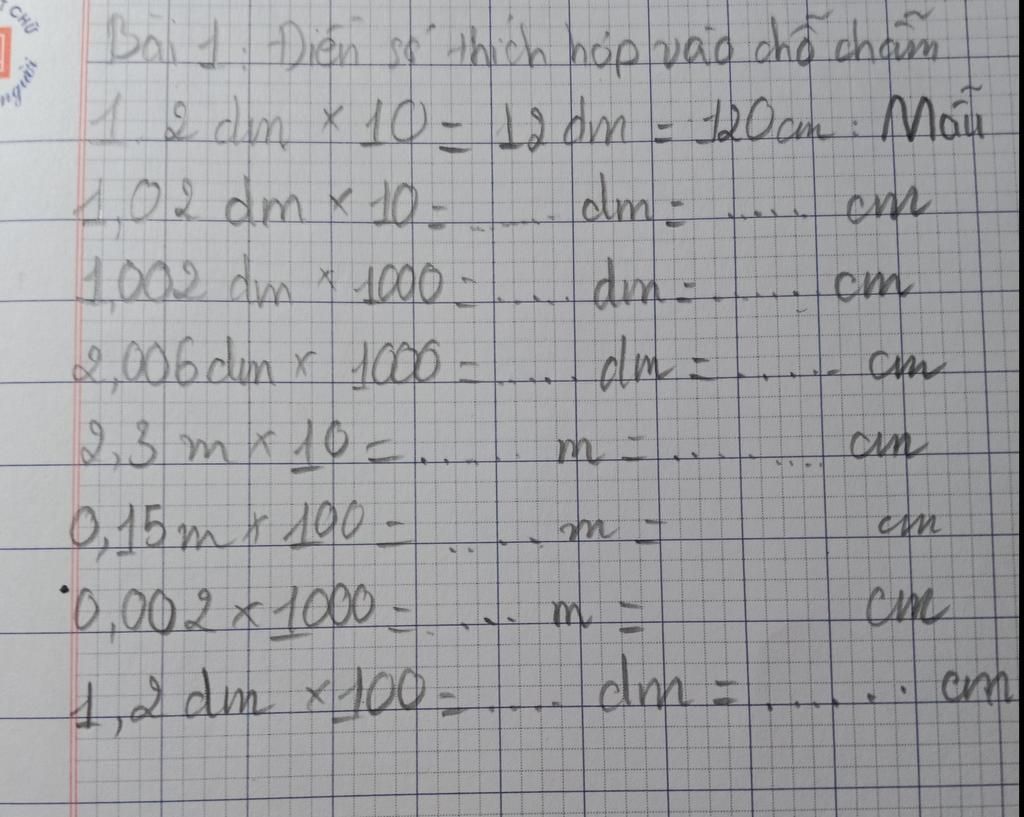 CHỮ
người
Bài 1: Điền số thích hợp vào chỗ chấm
1,2 dm × 10 = 12 dm = 120 cm : Mẫu
1,02 dm × 10 = ..... dm = ..... cm
1,002 dm × 1000 = ..... dm = ..... cm
2,006 dm × 1000 = ..... dm = ..... cm
2,3 m × 10 = ..... m = ........ cm
0,15 m × 100 = ..... m = cm
0,002 × 1000 = .... m = cm
1,2 dm × 100 = ..... dm = ...... cm